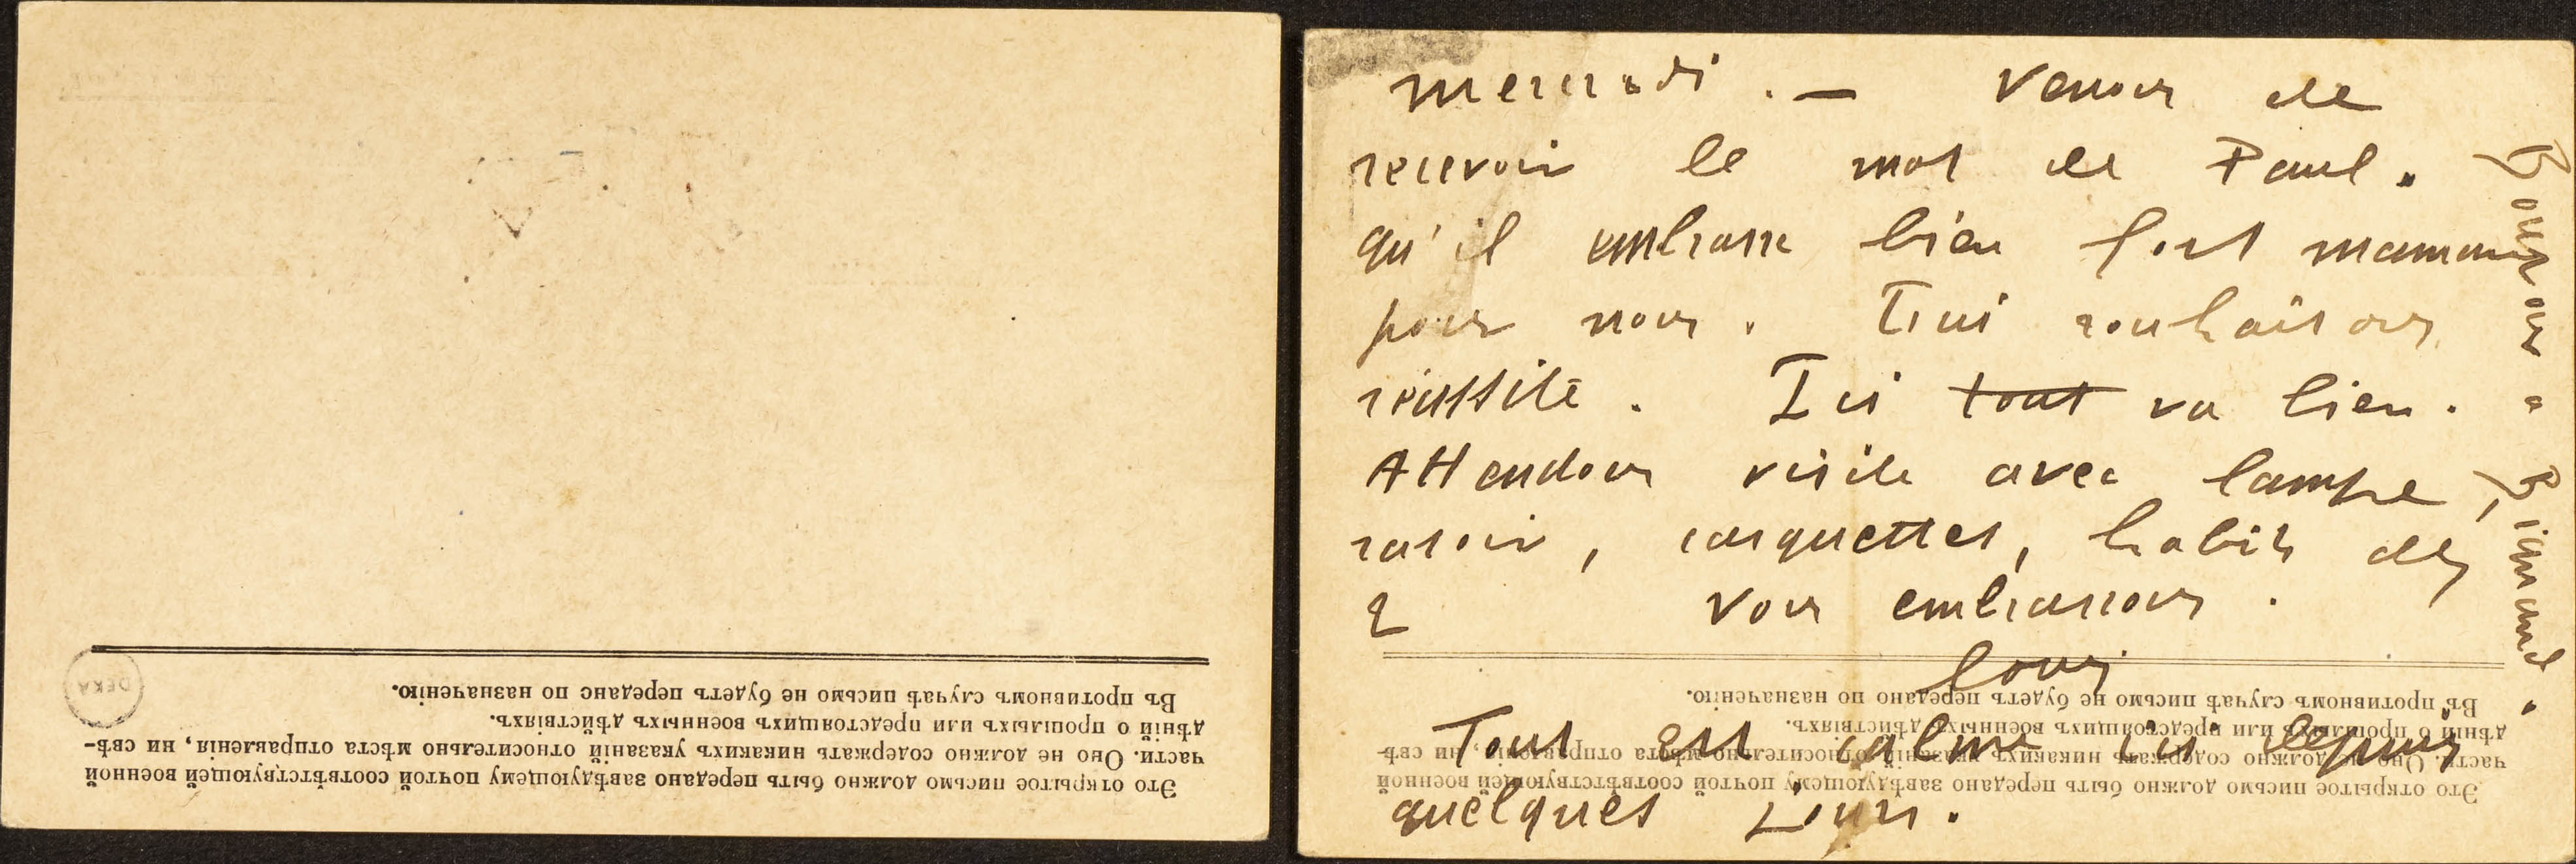 Это открытое письмо должно быть передано завѣдующему почтой соотвѣтствующей военной
части. Оно не должно содержать никакихъ указаній относительно мѣста отправленія, ни свѣ-
дѣній о прошлыхъ или предстоящихъ военныхъ дѣйствіяхъ.
Въ противномъ случаѣ письмо не будетъ передано по назначенію.
DEKA
mercredi . — Venons de
recevoir le mot de Paul.
qu'il embrasse bien fort maman
pour nous. Lui souhaitons
réussite. Ici tout va bien.
Attendons visite avec lampe,
rasoir, casquettes, habits des
2 Vous embrassons.
Louis
Tout est calme ici depuis
quelques jours.
Bonjour à Birmant.
Это открытое письмо должно быть передано завѣдующему почтой соотвѣтствующей военной
части. Оно не должно содержать никакихъ указаній относительно мѣста отправленія, ни свѣ-
дѣній о прошлыхъ или предстоящихъ военныхъ дѣйствіяхъ.
Въ противномъ случаѣ письмо не будетъ передано по назначенію.